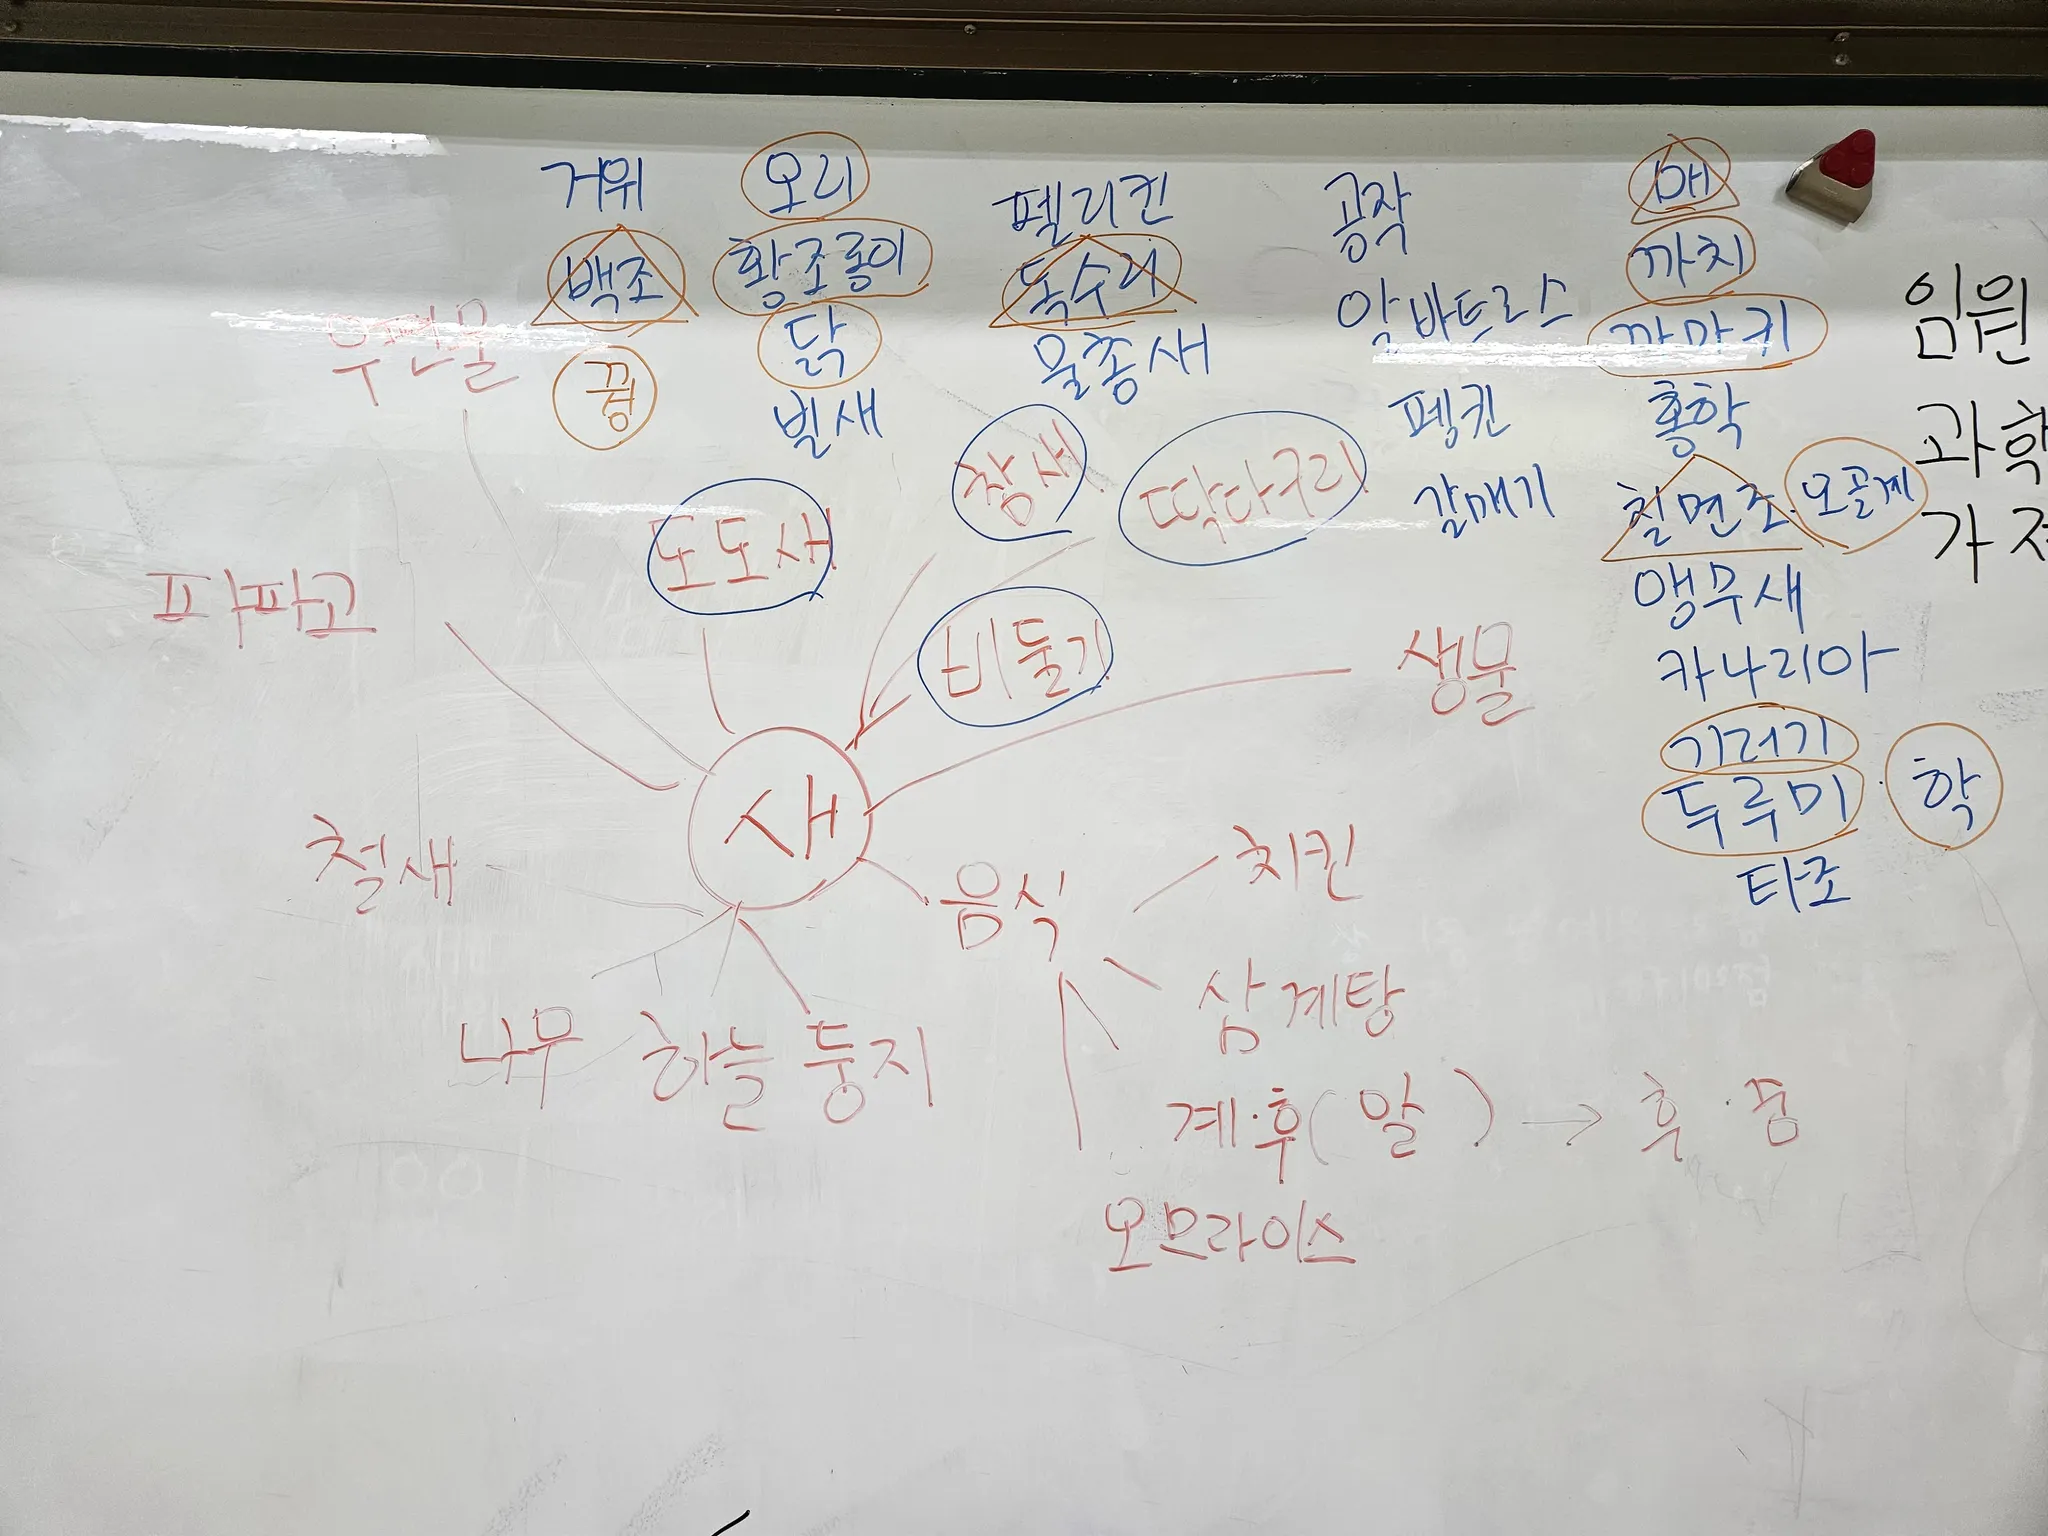 거위
백조
꿩
오리
황조롱이
닭
벌새
펠리컨
독수리
물총새
공작
알바트로스
펭귄
갈매기
매
까치
까마귀
홍학
칠면조 · 오골계
앵무새
카나리아
기러기
두루미 · 학
타조
임원
과학
가
우편물
참새
딱다구리
도도새
파파고
비둘기
생물
새
철새
음식
치킨
나무 하늘 둥지
삼계탕
계·후( 알 ) → 후·중
오므라이스